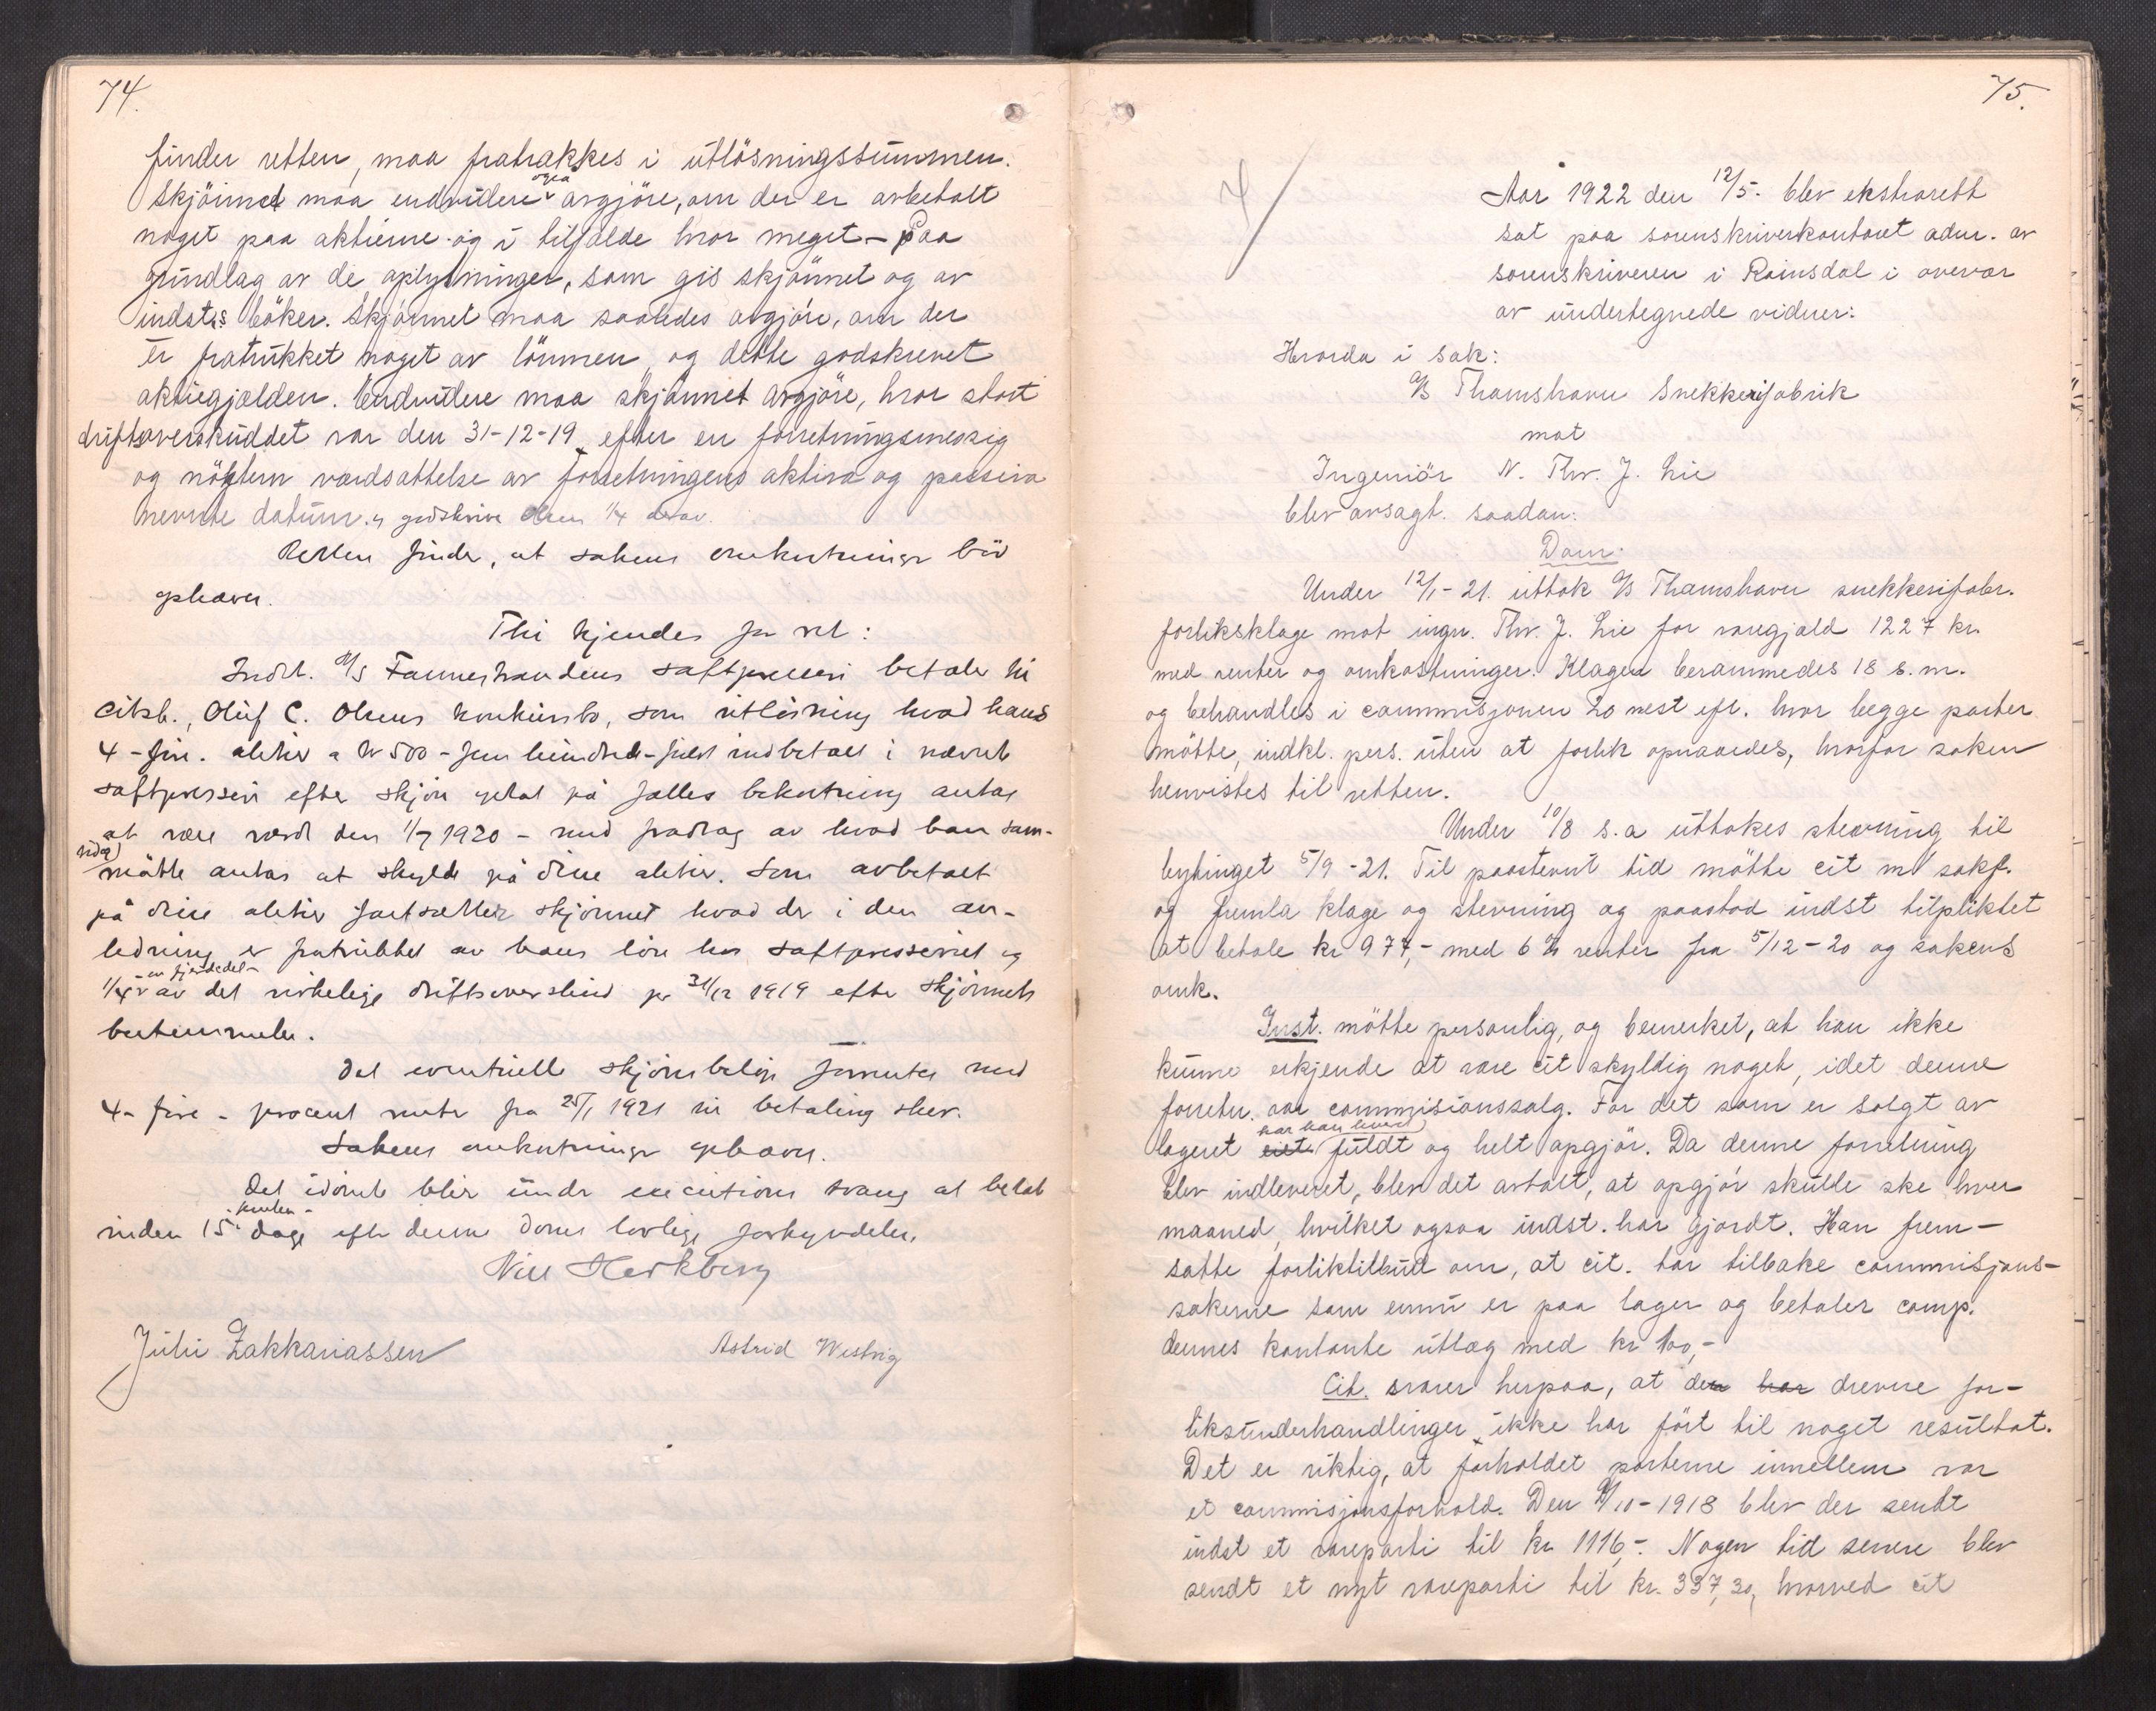 74.
finder retten, maa fratrækkes i utlösningssummen.
Skjönnet maa endvidere ogsaa avgjöre, om der er avbetalt
noget paa aktierne og i tilfælde hvor meget - Paa
grundlag av de oplysninger, som gis skjönnet og av
indst.s böker. Skjönnet maa saaledes avgjöre, om der
er fratrukket noget av lönnen, og dette godskrevet
aktiegjælden. Endvidere maa skjönnet avgjöre, hvor stort
driftsoverskuddet var den 31-12-19 efter en forretningsmessig
og nögtern værdsættelse av forretningens aktiva og passiva
nevnte datum. og godskrive Olsen 1/4 derav.
Retten finder, at sakens omkostninger bör
ophæves.
Thi kjendes for ret:
Indst. A/S Fannestrandens saftpresseri betaler til
Citsb., Oluf C. Olsens konkursbo, som utlösning hvad hans
4 - fire. aktier a kr 500 - fem hundred - fuldt indbetalt i nævnte
saftpresseri efter skjön optat på fælles bekostning antas
at være værd den 1/7 1920 - med fradrag av hvad han sam-
tidig måtte antas at skylde på disse aktier. Som avbetalt
på disse aktier fastsætter skjönnet hvad der i den an-
ledning er fratrukket av hans lön hos saftpresseriet og
1/4 - en fjerdedel - av det virkelige driftsoverskud pr 31/12 1919 efter skjönnets
bestemmelse.
Det eventuelle skjönsbelöp forrentes med
4 - fire - procent rente fra 25/1 1921 til betaling sker.
Sakens omkostninger ophæves.
Det idömte blir under executions tvang at betale
inden 15 - femten - dage efter denne doms lovlige forkyndelse.
Nils Hertzberg
Juli Zakkariassen Astrid Westvig
75.
4/
Aar 1922 den 12/5. blev ekstrarett
sat paa sorenskriverkontoret adm. av
sorenskriveren i Romsdal i overvær
av undertegnede vidner:
Hvorda i sak:
A/S Thamshavn Snekkerifabrik
mot
Ingeniör N. Thv. J. Lie
blev avsagt. saadan:
Dom:
Under 12/1-21. uttok A/S Thamshavn snekkerifabr.
forliksklage mot ingn. Thv. J. Lie for varegjæld 1227 kr.
med renter og omkostninger. Klagen berammedes 18 s. m.
og behandles i commisjonen 20 nest eft. hvor begge parter
mötte, indkl. pers. uten at forlik opnaaedes, hvorfor saken
henvistes til retten.
Under 10/8 s.a uttokes stevning til
bytinget 5/9-21. Til paastevnt tid mötte cit m/ sakf.
og fremla klage og stevning og paastod indst tilpliktet
at betale kr 977,- med 6 % renter fra 5/12-20 og sakens
omk.
Inst. mötte personlig, og bemerket, at han ikke
kunne erkjende at være cit skyldig noget, idet denne
forretn. var commisionssalg. For det som er solgt av
lageret har han levert fuldt og helt opgjör. Da denne forretning
blev indleveret, blev det avtalt, at opgjör skulle ske hver
maaned, hvilket ogsaa indst. har gjordt. Han frem-
satte forliktilbud om, at cit. tar tilbake commisjons-
sakerne som ennu er paa lager og betaler comp.
dennes kontante utlæg med kr 100,-
Cit. svarer herpaa, at de har drevne for-
liksunderhandlinger ikke har fört til noget resultat.
Det er riktig, at forholdet parterne imellem var
et commisjonsforhold. Den 4/10-1918 blev der sendt
indst et vareparti til kr. 1116,-. Nogen tid senere blev
sendt et nyt vareparti til kr. 337,30, hvorved cit